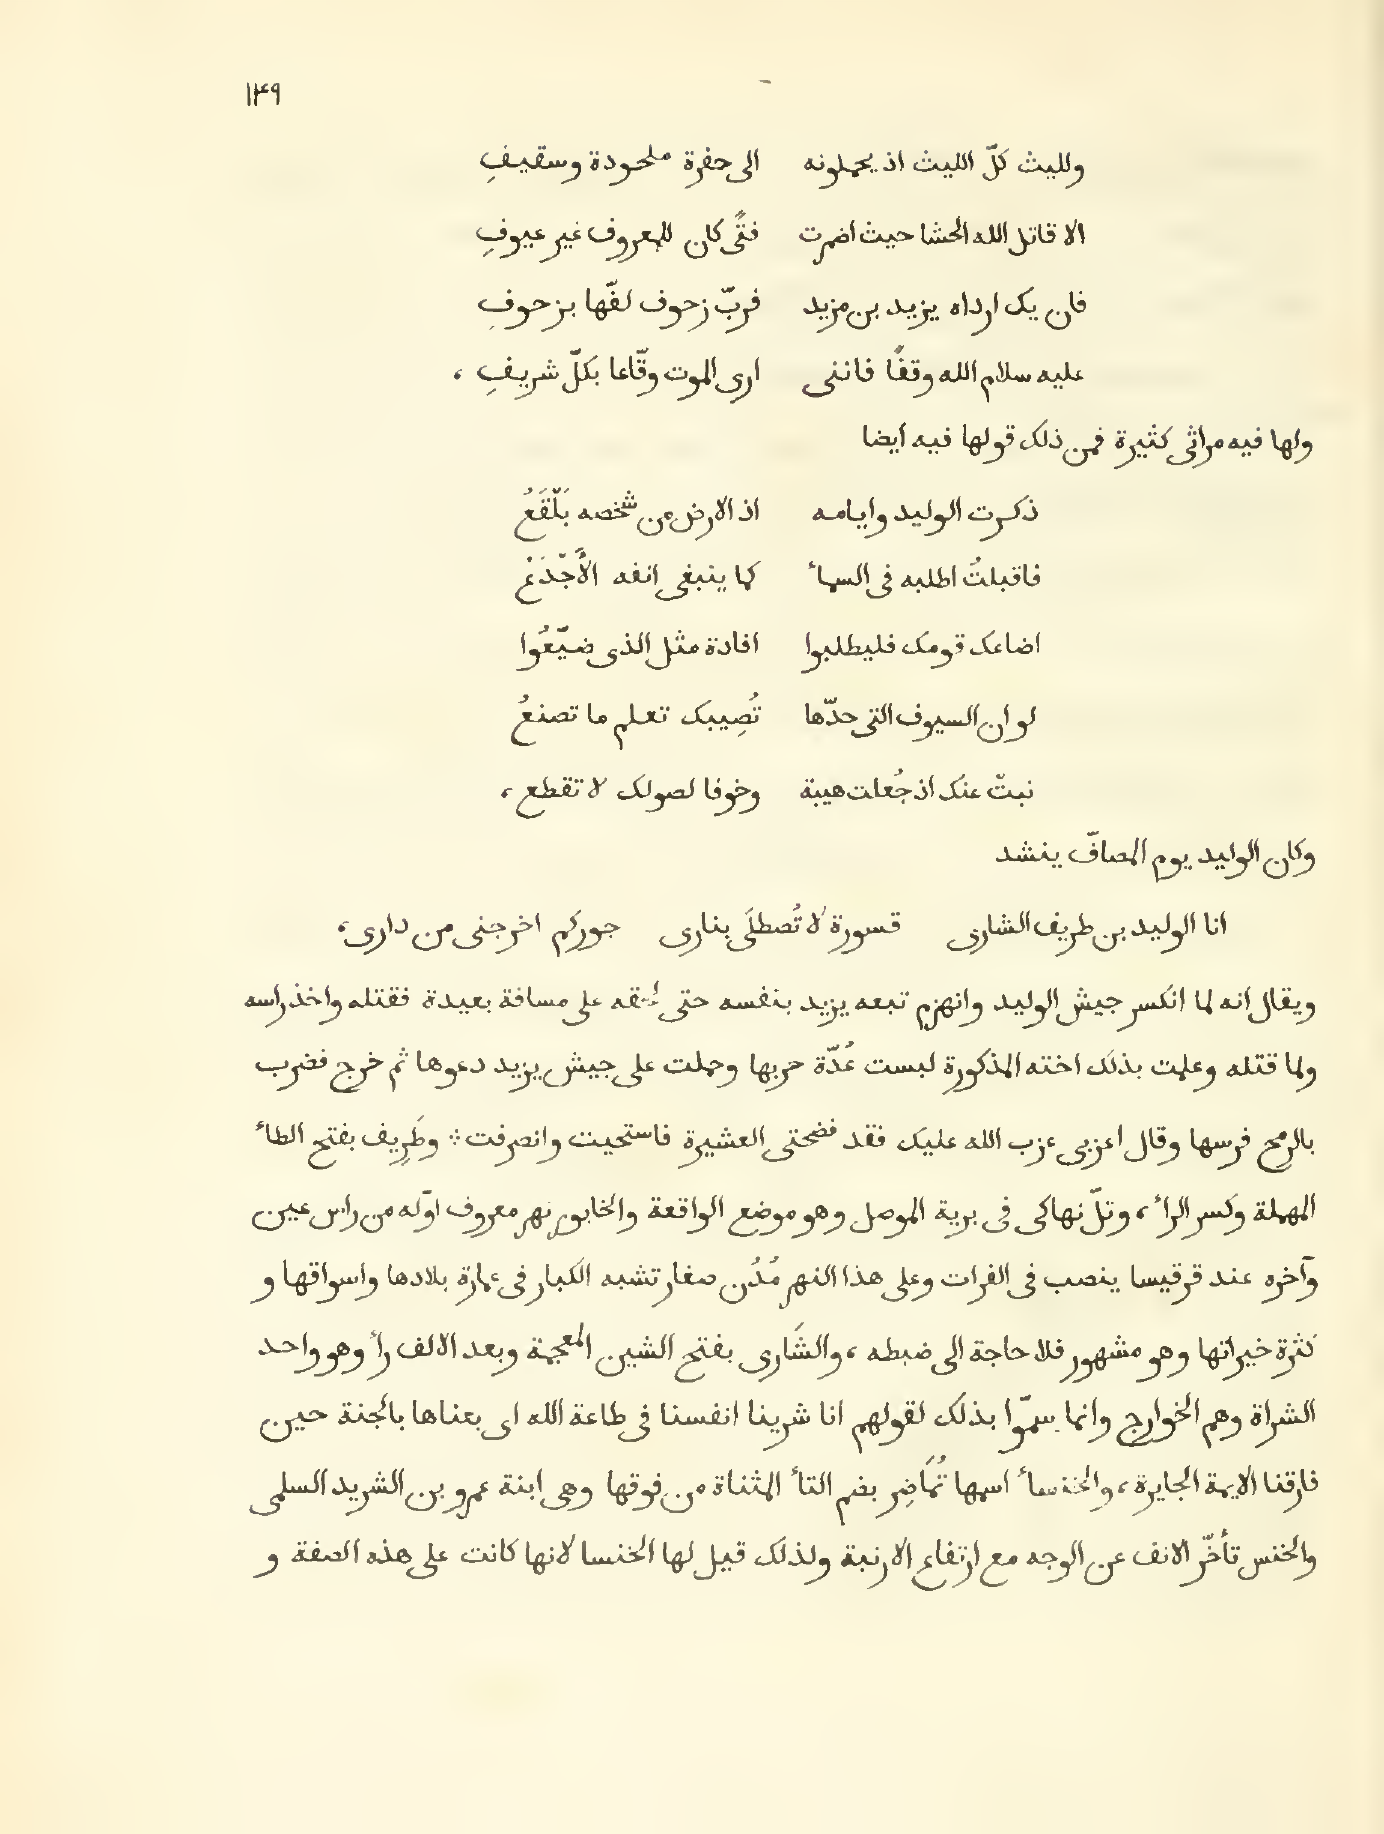 ١٣٩
ولليث كلّ الليث اذ يحملونه الى حفرة ملحودة وسقيفِ
الا قاتل الله الحشا حيث اضمرت فتًى كان للمعروف غير عيوفِ
فان يك ارداه يزيد بن مزيد فربّ زحوف لفّها بزحوفِ
عليه سلام الله وقفًا فاننى ارى الموت وقّاعا بكلّ شريفِ ،
ولها فيه مراثى كثيرة فمن ذلك قولها فيه ايضا
ذكرت الوليد وايامه اذ الارض من شخصه بَلْقَعُ
فاقبلتُ اطلبه فى السماء كما يبتغى انفه الأَجْدَعُ
اضاعك قومك فليطلبوا افادة مثل الذى ضيّعُوا
لو ان السيوف التى حدّها تُصِيبك تعلم ما تصنعُ
نبتْ عنك اذ جُعلت هيبة وخوفا لصولك لا تقطع ،
وكان الوليد يوم المصافّ ينشد
انا الوليد بن طريف الشارى قسورة لا تُصطلَى بنارى جوركم اخرجنى من دارى ،
ويقال انه لما انكسر جيش الوليد وانهزم تبعه يزيد بنفسه حتى لحقه على مسافة بعيدة فقتله واخذ راسه
ولما قتله وعلمت بذلك اخته المذكورة لبست عُدّة حربها وحملت على جيش يزيد دعوها ثم خرج فضرب
بالرمح فرسها وقال اعزبى عزب الله عليك فقد فضحتى العشيرة فاستحيت وانصرفت ؛ وطَرِيف بفتح الطاء
المهملة وكسر الراء ، وتلّ نهاكى فى برية الموصل وهو موضع الواقعة والخابور نهر معروف اوّله من راس عين
وآخره عند قرقيسا ينصب فى الفرات وعلى هذا النهر مُدُن صغار تشبه الكبار فى عمارة بلادها واسواقها و
كثرة خيراتها وهو مشهور فلا حاجة الى ضبطه ، والشَارى بفتح الشين المعجمة وبعد الالف راء وهو واحد
الشراة وهم الخوارج وانما سمّوا بذلك لقولهم انا شرينا انفسنا فى طاعة الله اى بعناها بالجنة حين
فارقنا الايمة الجايرة ، والخنساء اسمها تُمَاضِر بضم التاء المثناة من فوقها وهى ابنة عمرو بن الشريد السلمى
والخنس تأخّر الانف عن الوجه مع ارتفاع الارنبة ولذلك قيل لها الخنسا لانها كانت على هذه الصفة و